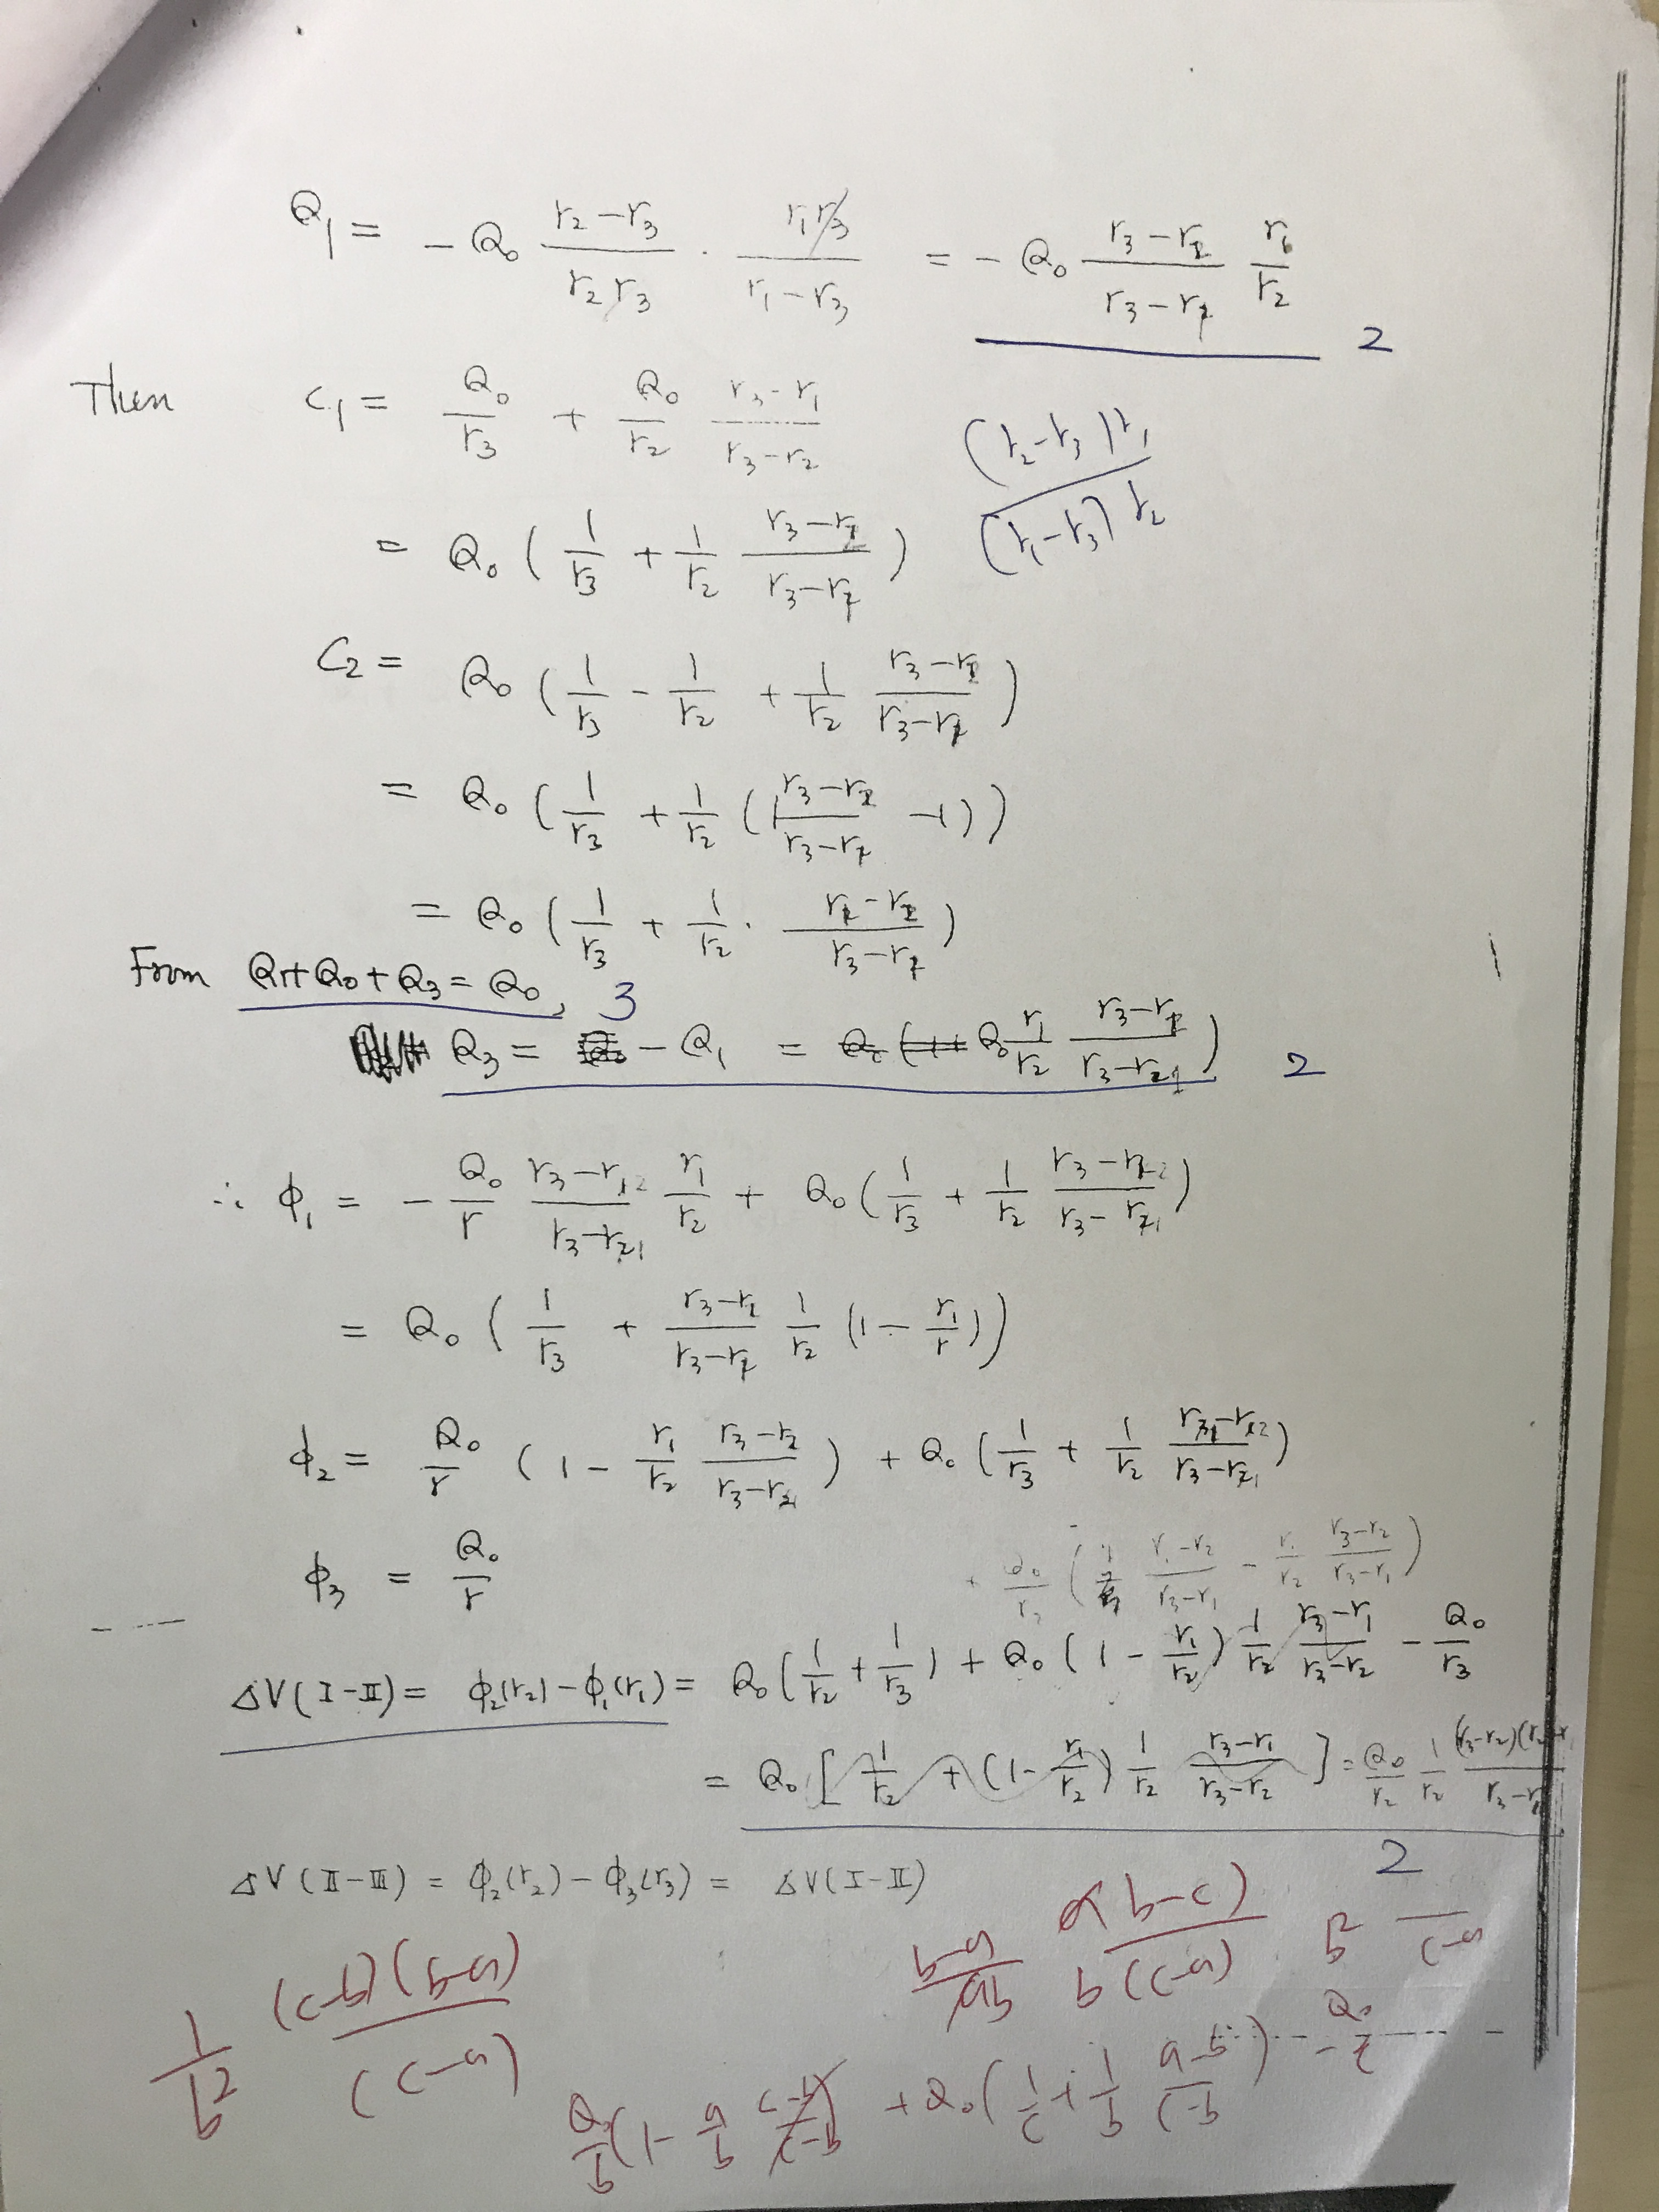 Q₁ = - Q₀ (r₂-r₃)/(r₂r₃) · (r₁r₃)/(r₁-r₃) = - Q₀ (r₃-r₂)/(r₃-r₁) r₁/r₂ 2
Then C₁ = Q₀/r₃ + Q₀/r₂ (r₃-r₁)/(r₃-r₂)
(r₂-r₃)r₁/(r₁-r₃)r₂
= Q₀ ( 1/r₃ + 1/r₂ (r₃-r₂)/(r₃-r₁) )
C₂ = Q₀ ( 1/r₃ - 1/r₂ + 1/r₂ (r₃-r₂)/(r₃-r₁) )
= Q₀ ( 1/r₃ + 1/r₂ ( (r₃-r₂)/(r₃-r₁) -1 ) )
= Q₀ ( 1/r₃ + 1/r₂ · (r₁-r₂)/(r₃-r₁) )
From Q₁+Q₀+Q₃ = Q₀, 3
Q₃ = - Q₁ = Q₀ r₁/r₂ (r₃-r₂)/(r₃-r₁) ) 2
∴ ϕ₁ = - Q₀/r (r₃-r₂)/(r₃-r₁) r₁/r₂ + Q₀ ( 1/r₃ + 1/r₂ (r₃-r₂)/(r₃-r₁) )
= Q₀ ( 1/r₃ + (r₃-r₂)/(r₃-r₁) 1/r₂ (1 - r₁/r) )
ϕ₂ = Q₀/r ( 1 - r₁/r₂ (r₃-r₂)/(r₃-r₁) ) + Q₀ ( 1/r₃ + 1/r₂ (r₁-r₂)/(r₃-r₁) )
ϕ₃ = Q₀/r
(r₁-r₂)/(r₃-r₁) - r₁/r₂ (r₃-r₂)/(r₃-r₁) )
ΔV(I-II) = ϕ₂(r₂) - ϕ₁(r₁) = Q₀ ( 1/r₂ + 1/r₃ ) + Q₀ ( 1 - r₁/r₂ ) 1/r₂ (r₃-r₁)/(r₃-r₂) - Q₀/r₃
= Q₀ [ 1/r₂ + (1 - r₁/r₂) 1/r₂ (r₃-r₁)/(r₃-r₂) ] = Q₀/r₂ 1/r₂ (r₃-r₂)(r₂-r₁)/(r₃-r₁)
2
ΔV(II-III) = ϕ₂(r₂) - ϕ₃(r₃) = ΔV(I-II)
1/b² (c-b)(b-a)/(c-a)
(b-a)/ab a(b-c)/b(c-a) b² /(c-a)
Q₀/b (1 - a/b (c-b)/(c-b)) + Q₀ ( 1/c + 1/b (a-b)/(c-b) ) - Q₀/c